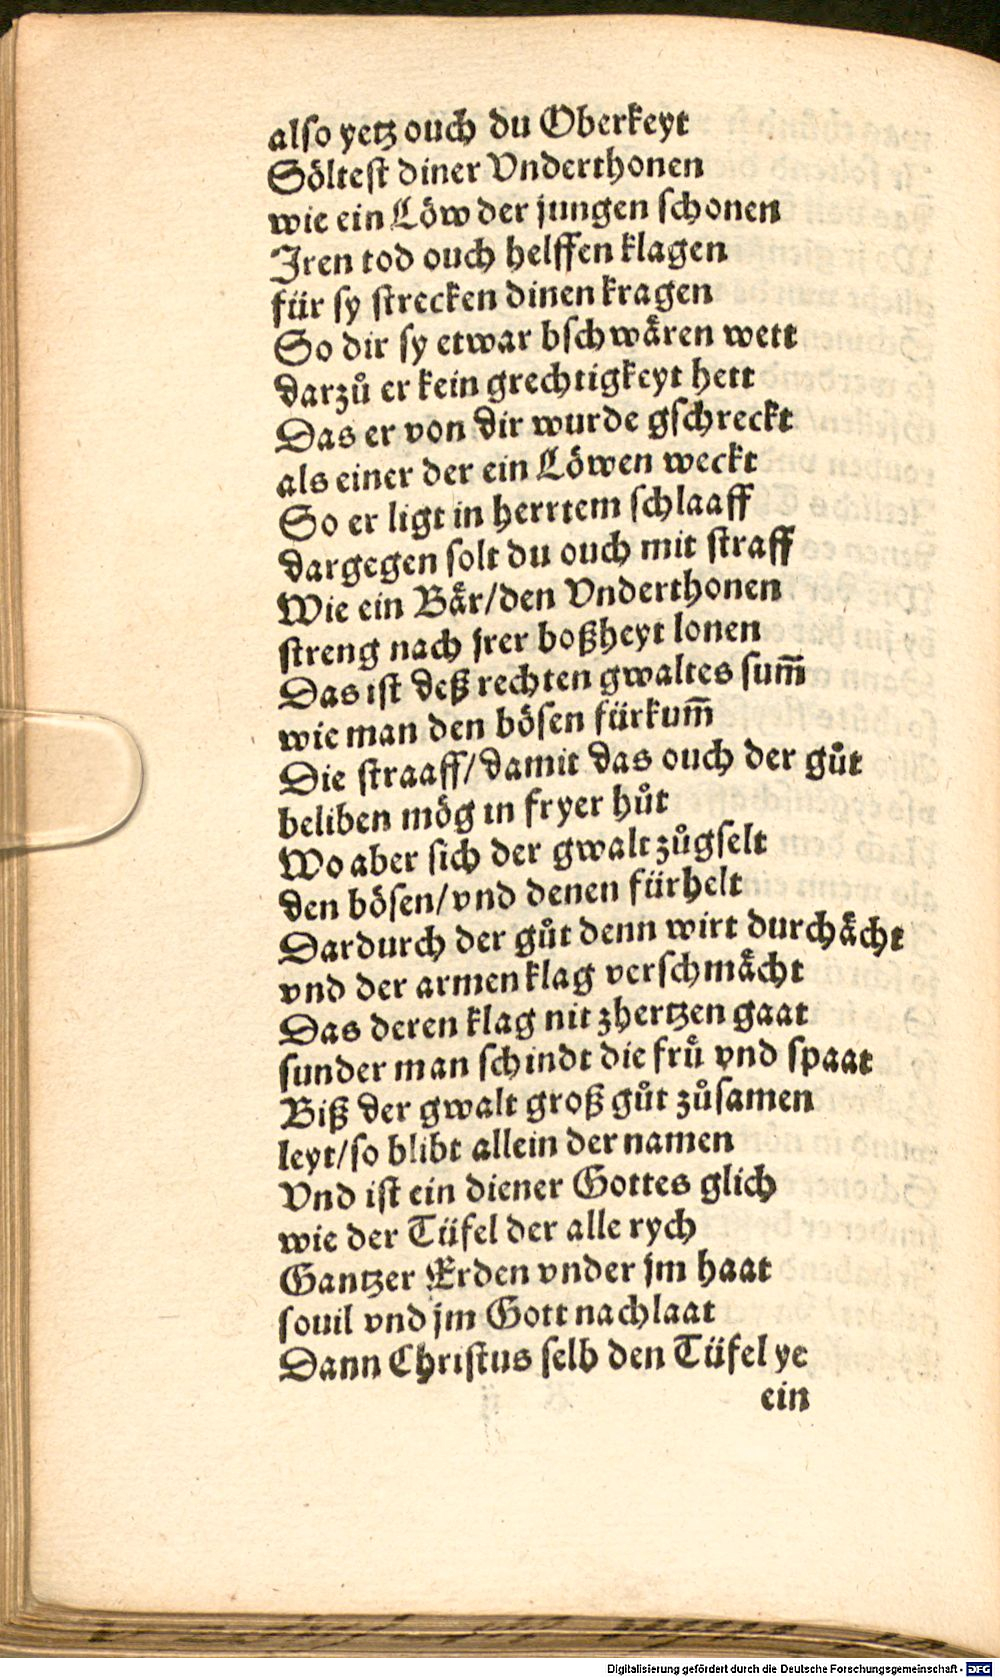 also yetz ouch du Oberkeyt
Söltest diner Vnderthonen
wie ein Löw der jungen schonen
Iren tod ouch helffen klagen
für sy strecken dinen kragen
So dir sy etwar bschwaͤren wett
darzuͦ er kein grechtigkeyt hett
Das er von dir wurde gschreckt
als einer der ein Löwen weckt
So er ligt in herrtem schlaaff
dargegen solt du ouch mit straff
Wie ein Baͤr/den Vnderthonen
streng nach jrer boßheyt lonen
Das ist deß rechten gwaltes sum̄
wie man den bösen fürkum̄
Die straaff/damit das ouch der guͦt
beliben mög in fryer huͦt
Wo aber sich der gwalt zuͦgselt
den bösen/vnd denen fürhelt
Dardurch der guͦt denn wirt durchaͤcht
vnd der armen klag verschmaͤcht
Das deren klag nit zhertzen gaat
sunder man schindt die fruͤ vnd spaat
Biß der gwalt groß guͦt zuͦsamen
leyt/so blibt allein der namen
Vnd ist ein diener Gottes glich
wie der Tüfel der alle rych
Gantzer Erden vnder jm haat
souil vnd jm Gott nachlaat
Dann Christus selb den Tüfel ye
ein
Digitalisierung gefördert durch die Deutsche Forschungsgemeinschaft - DFG